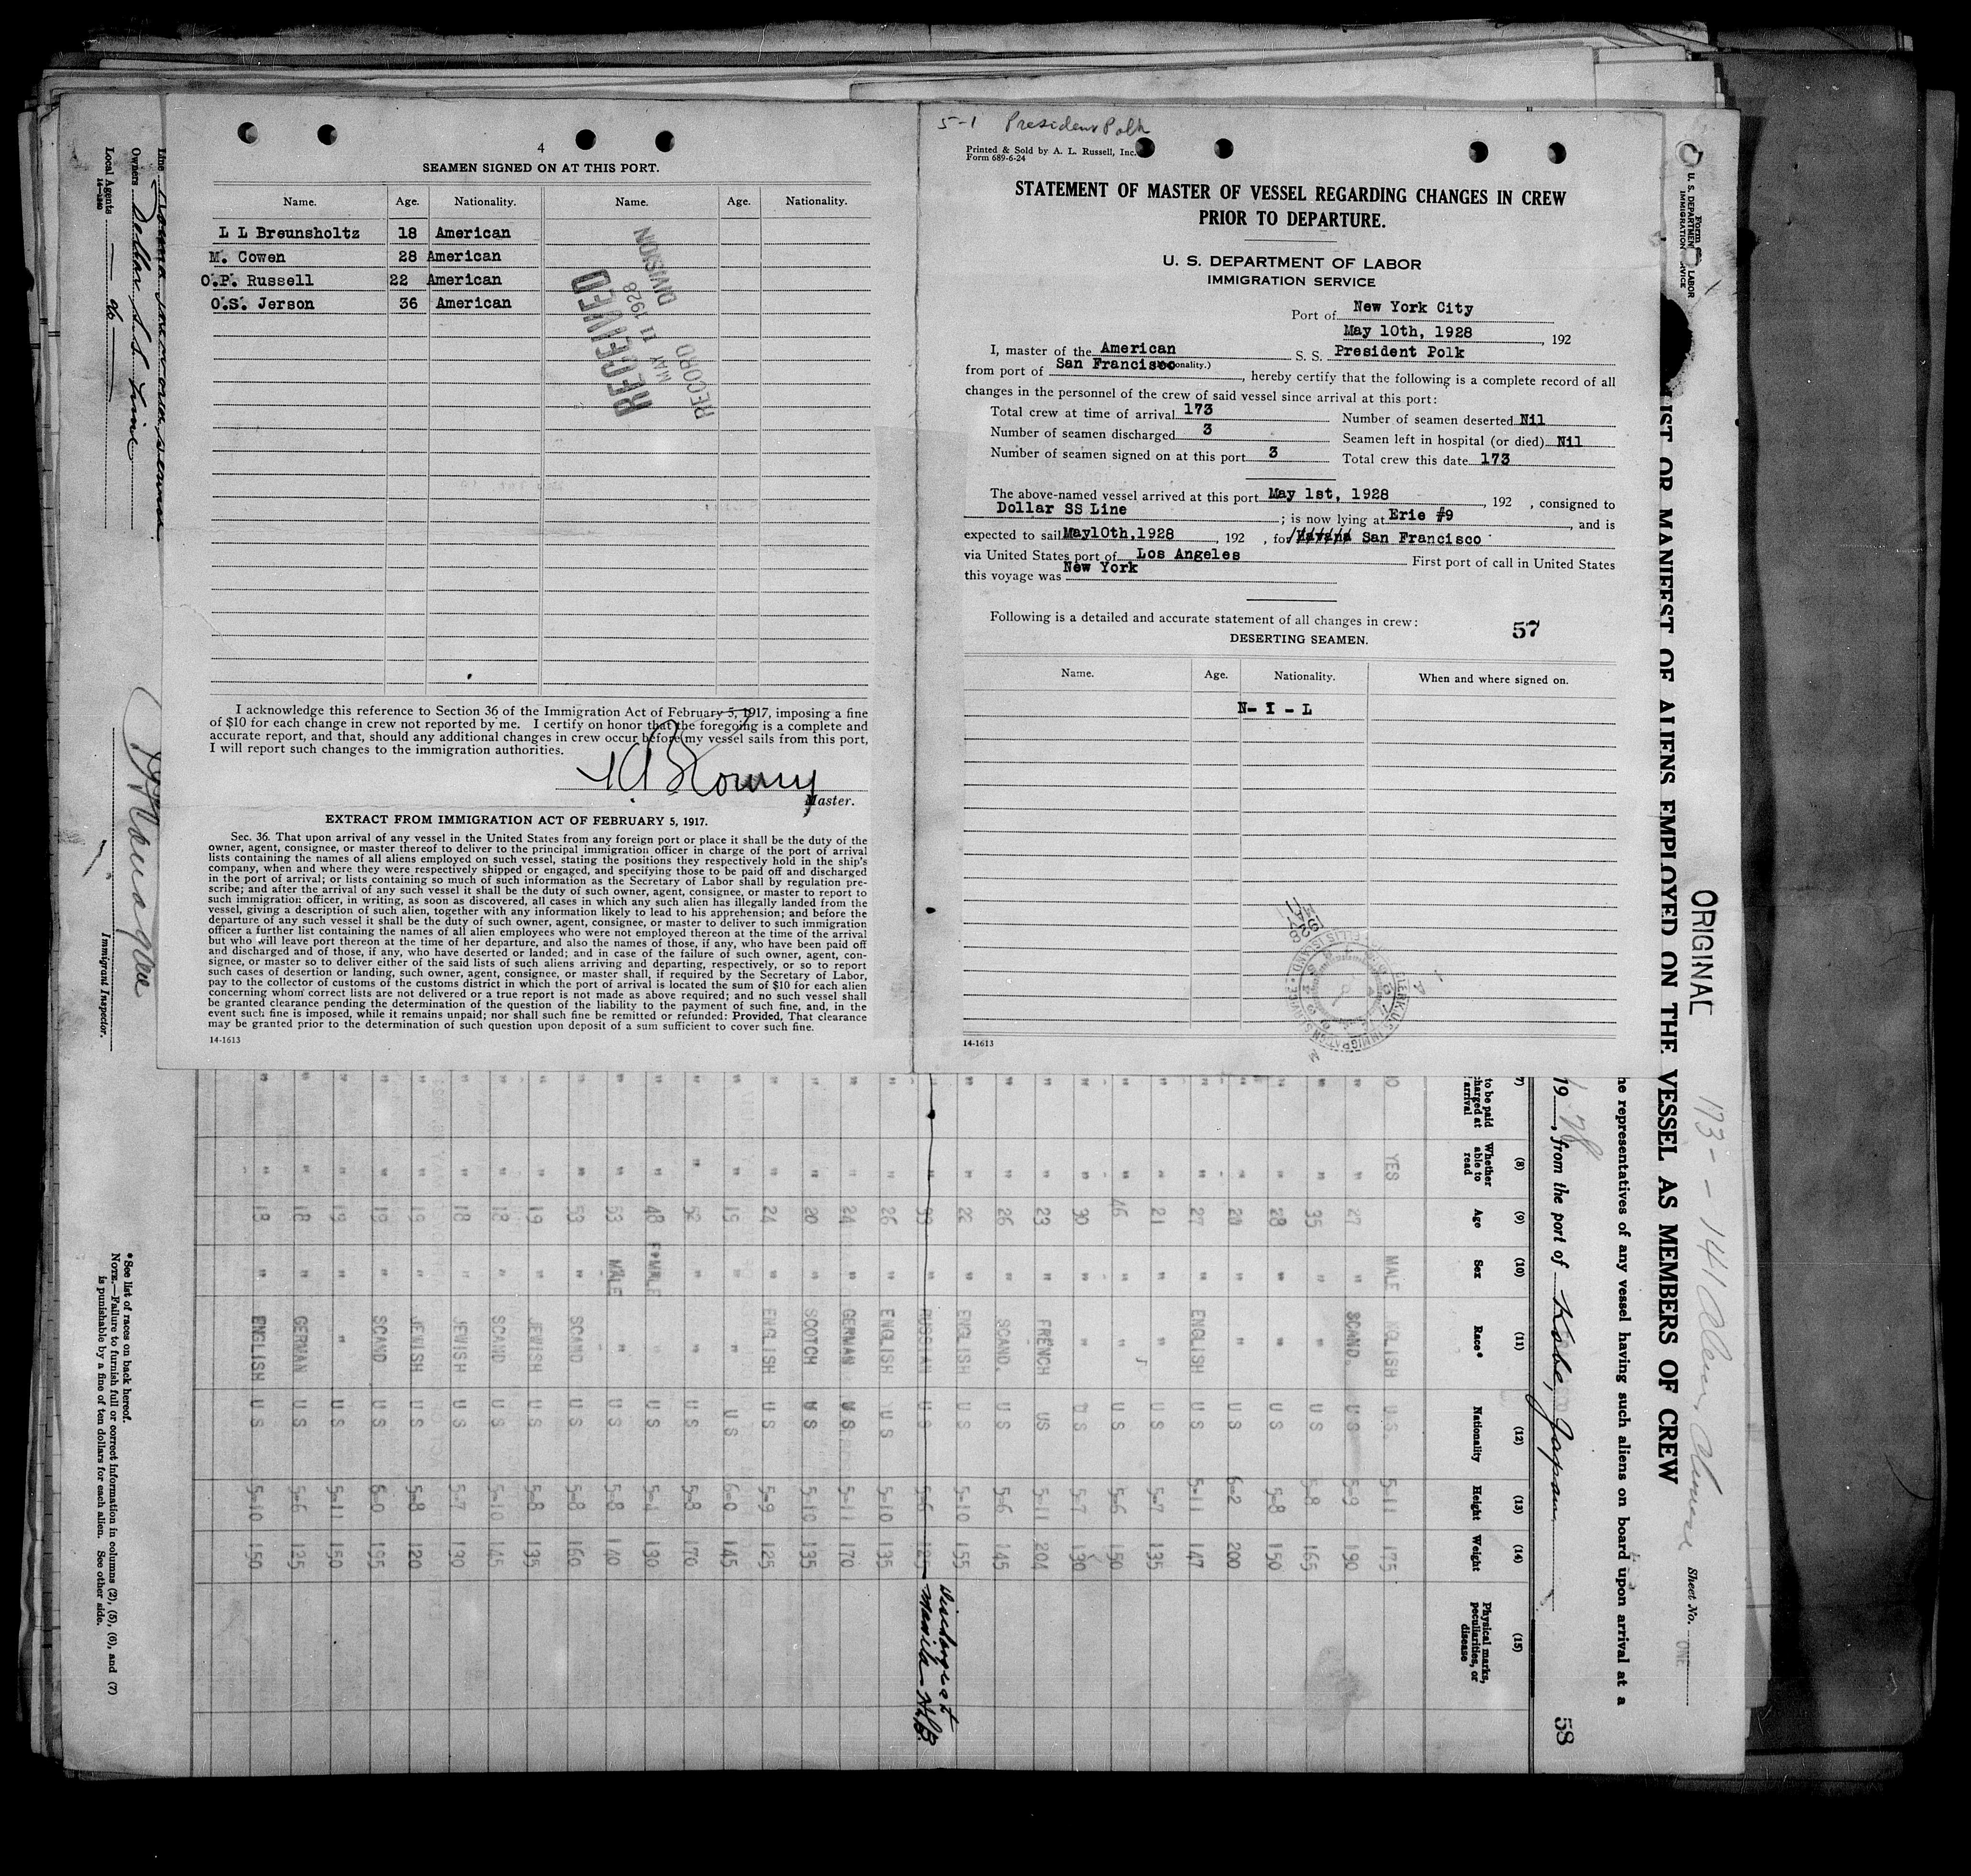 4
SEAMEN SIGNED ON AT THIS PORT.
Name. Age. Nationality. Name. Age. Nationality.
L L Breunsholtz 18 American
M. Cowen 28 American
O.P. Russell 22 American
O.S. Jerson 36 American
RECEIVED
MAY 11 1928
RECORD DIVISION
I acknowledge this reference to Section 36 of the Immigration Act of February 5, 1917, imposing a fine
of $10 for each change in crew not reported by me. I certify on honor that the foregoing is a complete and
accurate report, and that, should any additional changes in crew occur before my vessel sails from this port,
I will report such changes to the immigration authorities.
Master.
EXTRACT FROM IMMIGRATION ACT OF FEBRUARY 5, 1917.
Sec. 36. That upon arrival of any vessel in the United States from any foreign port or place it shall be the duty of the
owner, agent, consignee, or master thereof to deliver to the principal immigration officer in charge of the port of arrival
lists containing the names of all aliens employed on such vessel, stating the positions they respectively hold in the ship's
company, when and where they were respectively shipped or engaged, and specifying those to be paid off and discharged
in the port of arrival; or lists containing so much of such information as the Secretary of Labor shall by regulation pre-
scribe; and after the arrival of any such vessel it shall be the duty of such owner, agent, consignee, or master to report to
such immigration officer, in writing, as soon as discovered, all cases in which any such alien has illegally landed from the
vessel, giving a description of such alien, together with any information likely to lead to his apprehension; and before the
departure of any such vessel it shall be the duty of such owner, agent, consignee, or master to deliver to such immigration
officer a further list containing the names of all alien employees who were not employed thereon at the time of the arrival
but who will leave port thereon at the time of her departure, and also the names of those, if any, who have been paid off
and discharged and of those, if any, who have deserted or landed; and in case of the failure of such owner, agent, con-
signee, or master so to deliver either of the said lists of such aliens arriving and departing, respectively, or so to report
such cases of desertion or landing, such owner, agent, consignee, or master, shall, if required by the Secretary of Labor,
pay to the collector of customs of the customs district in which the port of arrival is located the sum of $10 for each alien
concerning whom correct lists are not delivered or a true report is not made as above required; and no such vessel shall
be granted clearance pending the determination of the question of the liability to the payment of such fine, and, in the
event such fine is imposed, while it remains unpaid; nor shall such fine be remitted or refunded: Provided, That clearance
may be granted prior to the determination of such question upon deposit of a sum sufficient to cover such fine.
14-1613
5-1 President Polk
Printed & Sold by A. L. Russell, Inc.
Form 689-6-24
STATEMENT OF MASTER OF VESSEL REGARDING CHANGES IN CREW
PRIOR TO DEPARTURE.
U. S. DEPARTMENT OF LABOR
IMMIGRATION SERVICE
Port of New York City
May 10th, 1928, 192
I, master of the American S. S. President Polk
from port of San Francisco, hereby certify that the following is a complete record of all
changes in the personnel of the crew of said vessel since arrival at this port:
Total crew at time of arrival 173 Number of seamen deserted Nil
Number of seamen discharged 3 Seamen left in hospital (or died) Nil
Number of seamen signed on at this port 3 Total crew this date 173
The above-named vessel arrived at this port May 1st, 1928, 192 , consigned to
Dollar SS Line; is now lying at Erie #9, and is
expected to sail May10th,1928, 192 , for Havana San Francisco
via United States port of Los Angeles First port of call in United States
this voyage was New York
Following is a detailed and accurate statement of all changes in crew:
57
DESERTING SEAMEN.
Name. Age. Nationality. When and where signed on.
N- I - L
14-1613
ORIGINAL
Sheet No. ONE
LIST OR MANIFEST OF ALIENS EMPLOYED ON THE VESSEL AS MEMBERS OF CREW
he representatives of any vessel having such aliens on board upon arrival at a
19 28, from the port of Kobe, Japan
58
(7) (8) (9) (10) (11) (12) (13) (14) (15)
to be paid
harged at
arrival
Whether
able to
read
Age
Sex
Race*
Nationality
Height
Weight
Physical marks,
peculiarities, or
disease
NO YES MALE ENGLISH U S 5-11 175
" " 27 " SCAND. U S 5-9 190
" " 35 " " U S 5-8 165
" " 28 " " U S 5-8 150
" " 28 " " U S 6-2 200
" " 27 " ENGLISH U S 5-11 147
" " 21 " " U S 5-7 135
" " 46 " " U S 5-6 150
" " 30 " " U S 5-7 130
" " 23 " FRENCH US 5-11 204
" " 26 " SCAND. U S 5-6 145
" " 22 " ENGLISH U S 5-10 155
" " 33 " RUSSIAN U S 5-6 125 Discharged at Manila
" " 26 " ENGLISH U S 5-10 135
" " 24 " GERMAN U S 5-11 170
" " 20 " SCOTCH U S 5-10 135
" " 24 " ENGLISH U S 5-9 125
" " 19 " " U S 6-0 145
" " 52 " " U S 5-8 170
" " 48 F*MALE " U S 5-4 130
" " 53 MALE " U S 5-8 140
" " 53 " SCAND U S 5-8 160
" " 19 " JEWISH U S 5-8 135
" " 18 " SCAND U S 5-10 145
" " 18 " JEWISH U S 5-7 190
" " 19 " JEWISH U S 5-8 120
" " 19 " SCAND U S 6-0 195
" " 19 " " U S 5-11 150
" " 18 " GERMAN U S 5-6 135
" " 18 " ENGLISH U S 5-10 150
Line
Owners Dollar S. S. Line
Local Agents do
14-1240
Immigrant Inspector.
* See list of races on back hereof.
NOTE.—Failure to furnish full or correct information in columns (2), (5), (6), and (7)
is punishable by a fine of ten dollars for each alien. See other side.